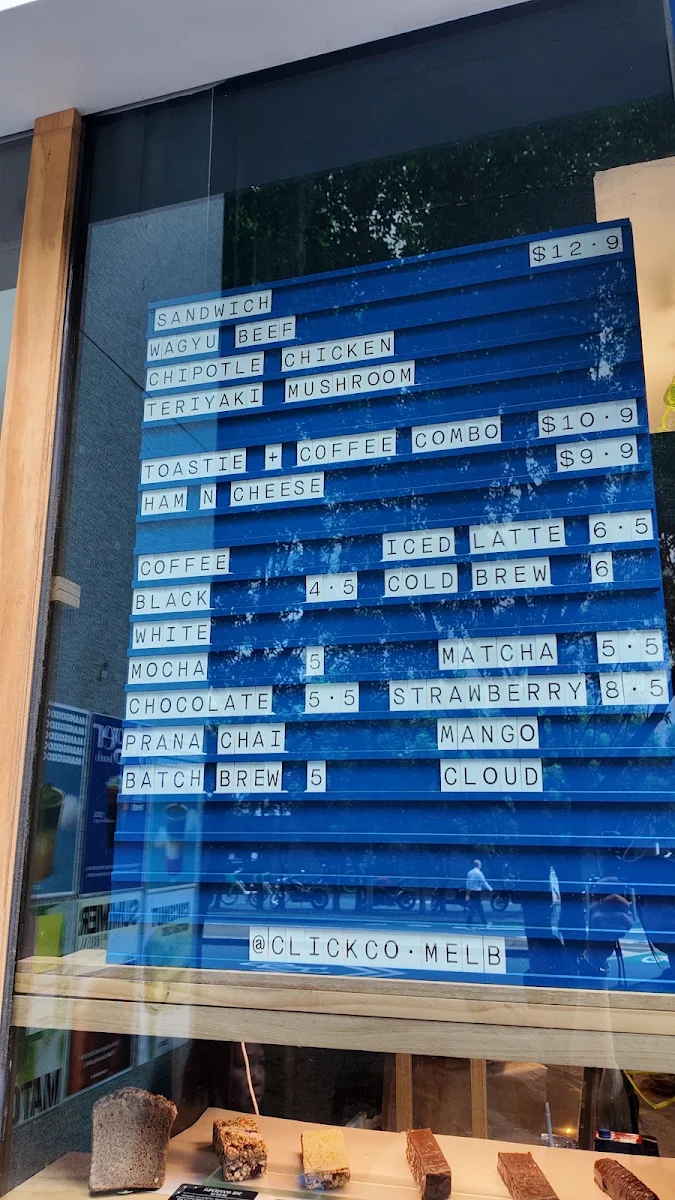 $12.9
SANDWICH
WAGYU BEEF
CHIPOTLE CHICKEN
TERIYAKI MUSHROOM
TOASTIE + COFFEE COMBO $10.9
HAM N CHEESE $9.9
COFFEE ICED LATTE 6.5
BLACK 4.5 COLD BREW 6
WHITE
MOCHA 5 MATCHA 5.5
CHOCOLATE 5.5 STRAWBERRY 8.5
PRANA CHAI MANGO
BATCH BREW 5 CLOUD
@CLICKCO.MELB